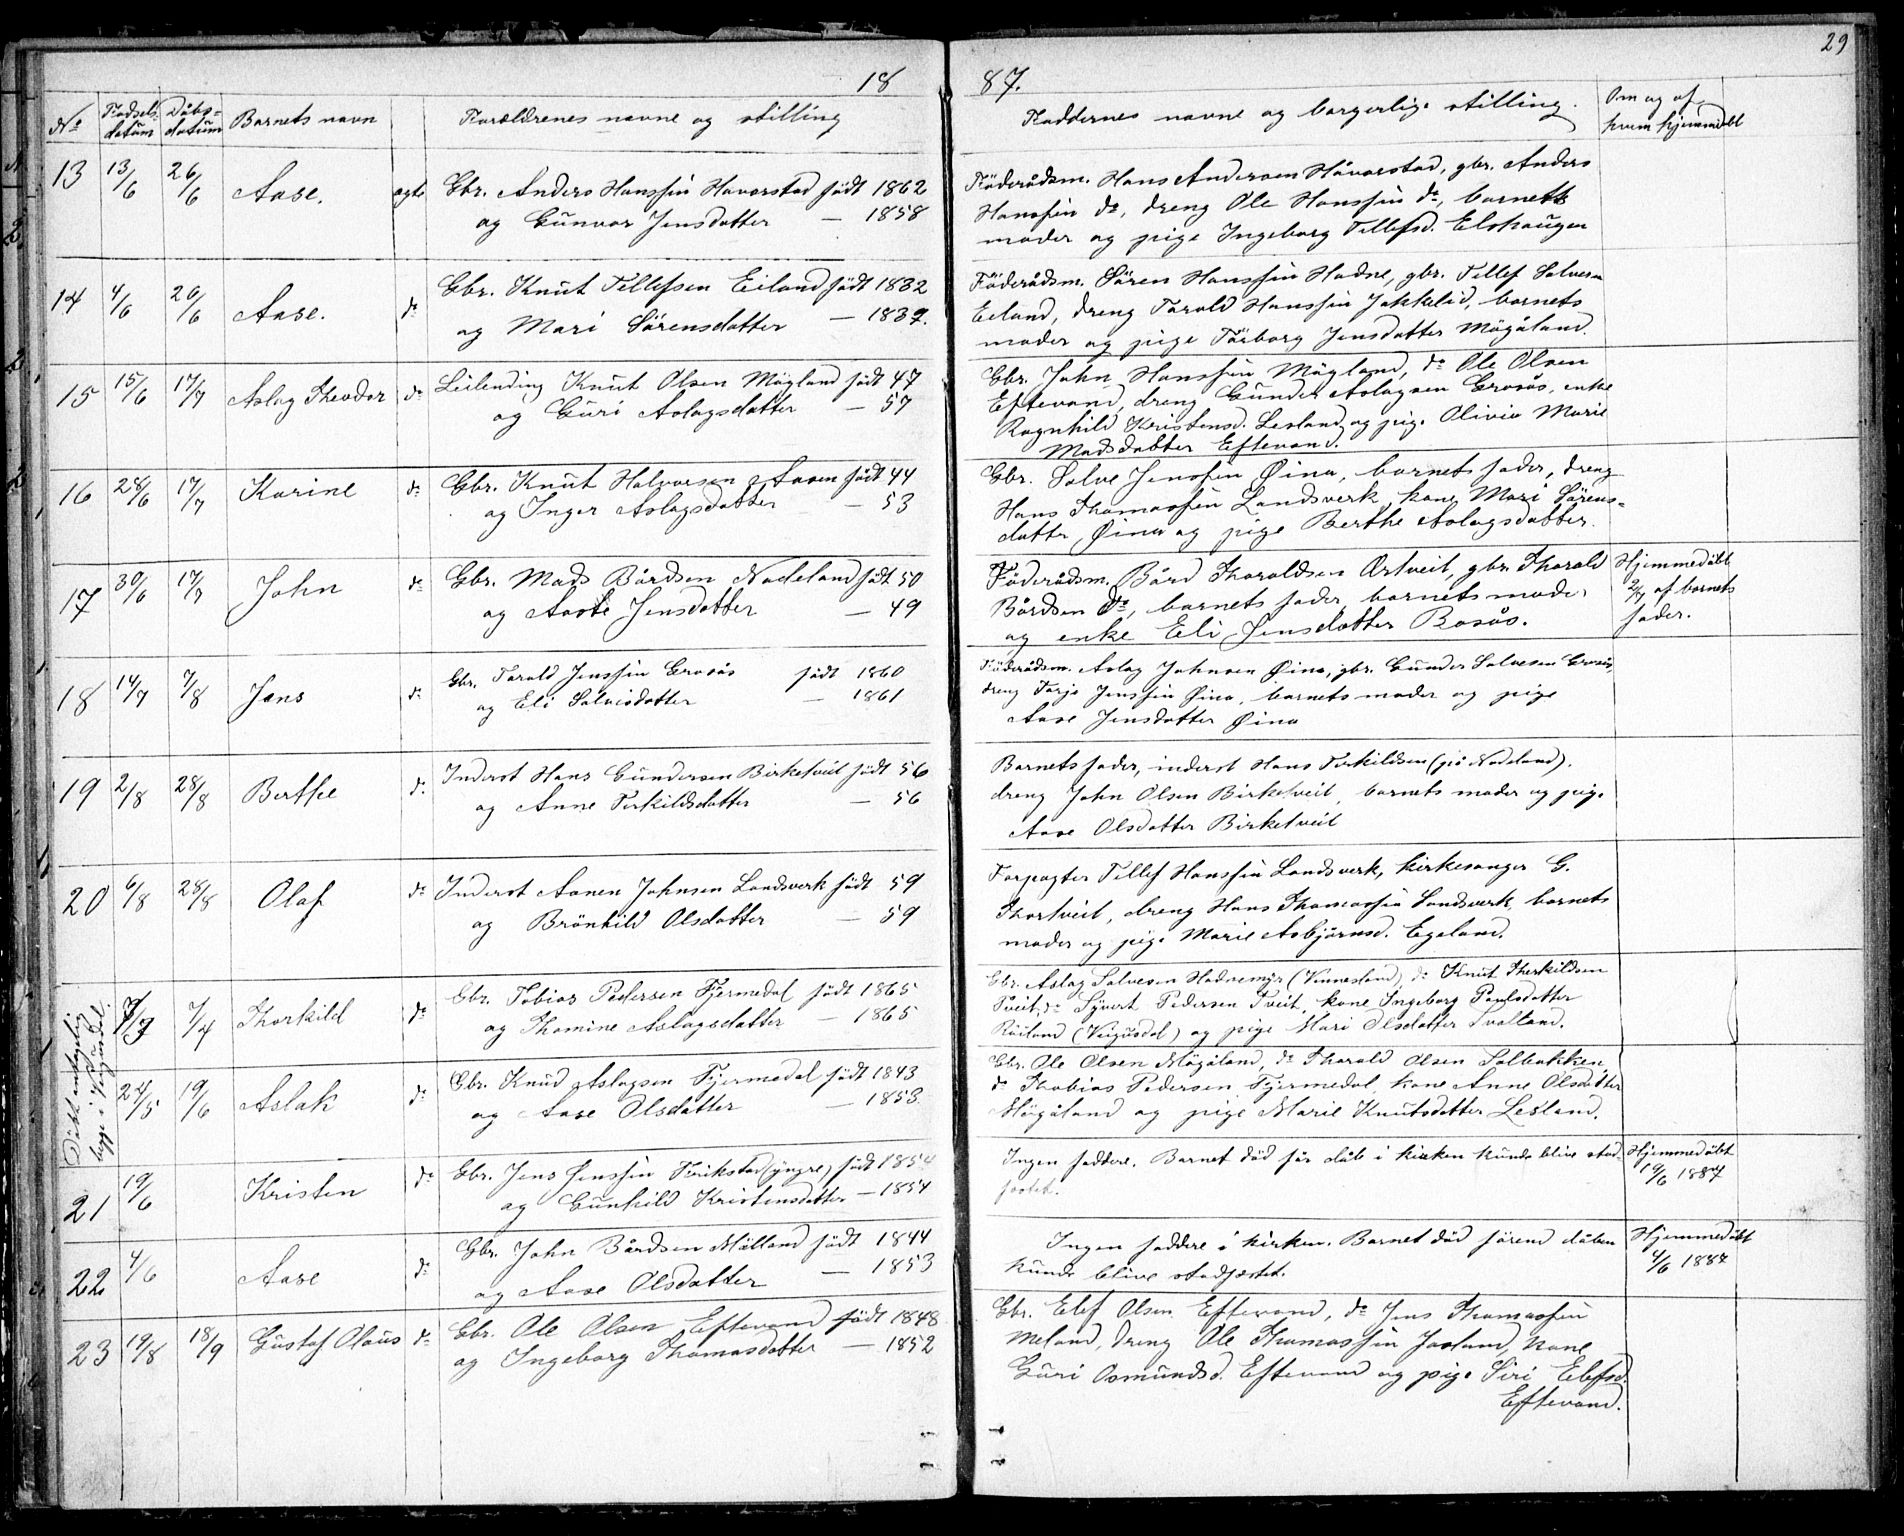 29
18 87.
No Fødsels-datum Dåbs-datum Barnets navn Forældrenes navne og stilling Faddernes navne og borgerlige stilling. Om og af hvem hjemmedøbt
13 13/6 26/6 Aase. ægte Gbr. Anders Hanssøn Havorstad født 1862
og Gunvor Jensdatter — 1858
Föderådsm. Hans Andersen Håvorstad, gbr. Anders
Hanssøn do, dreng Ole Hanssøn do, barnets
moder og pige Ingeborg Tellefsd. Elshaugen
14 4/6 26/6 Aase. do Gbr. Knut Tellefsen Eiland født 1832
og Mari Sörensdatter — 1837.
Föderådsm. Sören Hanssøn Hadne, gbr. Tellef Salvesen
Eiland, dreng Tarald Hanssøn Jakkelid, barnets
moder og pige Törborg Jensdatter Mögåland.
15 15/6 17/7 Aslag Theodor do Leilending Knut Olsen Mögland født 47
og Guri Aslagsdatter — 57
Gbr. John Hanssøn Mögland, do Ole Olsen
Eftevand, dreng Gunder Aslagsen Grosås, enke
Ragnhild Kristensd. Lesland og pige Olivia Marie
Madsdatter Eftevand.
16 28/6 17/7 Karine do Gbr. Knut Halvorsen Aasen født 44
og Inger Aslagsdatter — 53
Gbr. Salve Jenssøn Øina, barnets fader, dreng
Hans Thomassøn Landsverk, kone Mari Sörens-
datter, Øina og pige Berthe Aslagsdatter.
17 30/6 17/7 John do Gbr. Mads Bårdsen Nodeland født 50
og Aaste Jensdatter — 49
Föderådsm. Bård Tharaldsen Ortveit, gbr. Tharald
Bårdsen do, barnets fader, barnets moder
og enke Eli Jensdatter Bosås.
Hjemmedøbt
2/7 af barnets
fader.
18 14/7 7/8 Jens do Gbr. Tarald Jenssøn Grosås født 1860
og Eli Salvesdatter — 1861
Föderådsm. Aslag Johnsen Øina, gbr. Gunder Salvesen Grosås,
dreng Tarje Jenssøn Øina, barnets moder og pige
Aase Jensdatter Øina
19 2/8 28/8 Berthe do Inderst Hans Gundersen Birketveit født 56
og Anne Terkildsdatter — 56
Barnets fader, inderst Hans Terkildsen (på Nodeland).
dreng John Olsen Birketveit, barnets moder og pige
Aase Olsdatter Birketveit
20 6/8 28/8 Olaf do Inderst Aanen Johnsen Landsverk født 59
og Brönhild Olsdatter — 59
Forpagter Tellef Hanssøn Landsverk, kirkesanger G.
Thortveit, dreng Hans Thomassøn Landsverk, barnets
moder og pige Marie Asbjörnsd. Egeland.
Döbt
begge i Veigusdal.
7/4 Thorkild do Gbr. Tobias Pedersen Fjermedal født 1865
og Thomine Aslagsdatter — 1865
Gbr. Aslag Salvesen Hadnemyr (Vinnesland), do Knut Therkildsen
Tveit, do Syvert Pedersen Tveit, kone Ingeborg Paulsdatter
Röiland (Veigusdal) og pige Mari Olsdatter Svaland.
24/5 19/6 Aslak do Gbr. Knud Aslagsen Fjermedal født 1843
og Aase Olsdatter — 1853
Gbr. Ole Olsen Mögåland, do Tharald Olsen Solbakken,
do Thobias Pedersen Fjermedal, kone Anne Olsdatter
Mögåland og pige Marie Knutsdatter Lesland.
21 19/6 Kristen do Gbr. Jens Jenssøn Ferikstad (yngre) født 1854
og Gunhild Kristensdatter — 1854
Ingen faddere. Barnet död før dåb i kirken kunde blive stad-
fæstet.
Hjemmedøbt
19/6 1887
22 4/6 Aase do Gbr. John Bårdsen Mölland født 1844
og Aase Olsdatter — 1853
Ingen faddere i kirken. Barnet död förend dåben
kunde blive stadfæstet.
Hjemmedøbt
4/6 1887
23 19/8 18/9 Gustaf Olaus do Gbr. Ole Olsen Eftevand født 1848
og Ingeborg Thomasdatter — 1852
Gbr. Elef Olsen Eftevand, do Jens Thomassøn
Meland, dreng Ole Thomassøn Josland, kone
Guri Osmundsd. Eftevand og pige Siri Elefsd.
Eftevand.